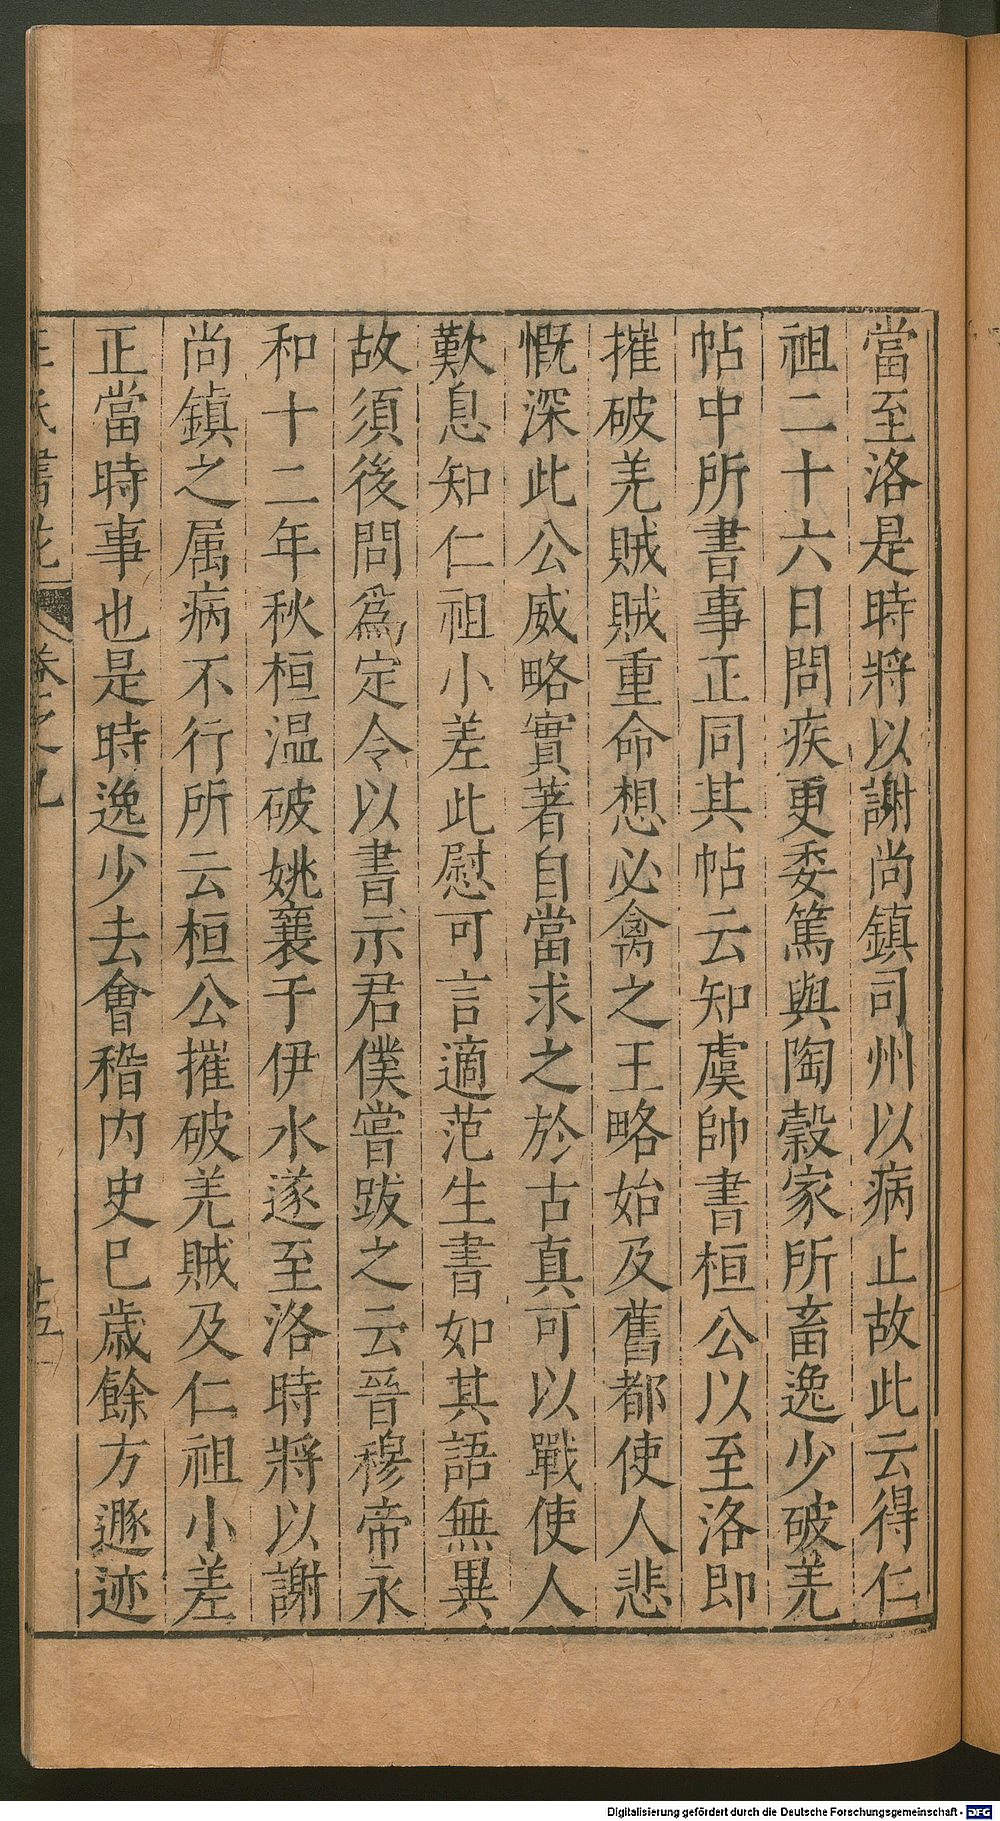 當至洛是時將以謝尚鎮司州以病止故此云得仁
祖二十六日問疾更委篤與陶穀家所畜逸少破羌
帖中所書事正同其帖云知虞帥書桓公以至洛即
摧破羌賊賊重命想必禽之王略始及舊都使人悲
慨深此公威略實著自當求之於古真可以戰使人
歎息知仁祖小差此慰可言適范生書如其語無異
故須後問爲定令以書示君僕嘗跋之云晉穆帝永
和十二年秋桓温破姚襄于伊水遂至洛時將以謝
尚鎮之属病不行所云桓公摧破羌賊及仁祖小差
正當時事也是時逸少去會稽内史已歲餘方遯迹
卷之九
Digitalisierung gefördert durch die Deutsche Forschungsgemeinschaft - DFG